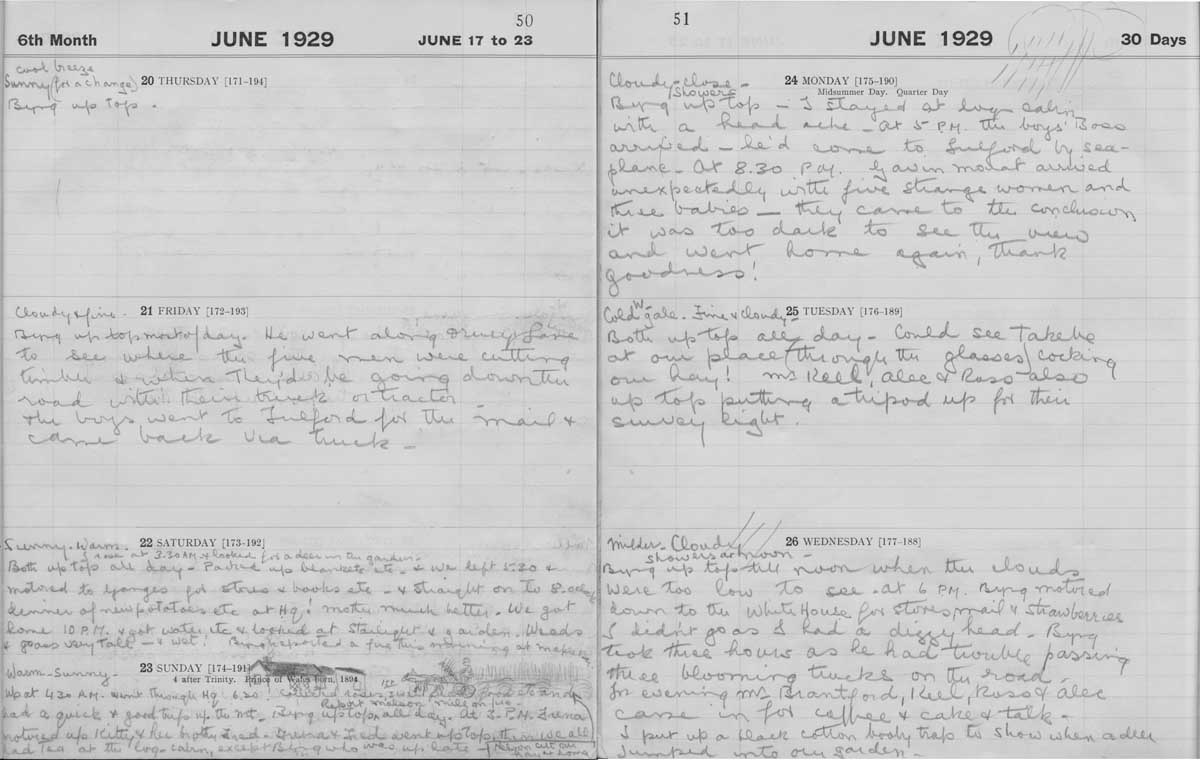 50
6th Month JUNE 1929 JUNE 17 to 23
cool breeze
Sunny (for a change) 20 THURSDAY [171-194]
Byng up top.
Cloudy & fine. 21 FRIDAY [172-193]
Byng up top most of day. He went along Lane
to see where the five men were cutting
timber & where They'd be going down the
road with their truck or tractor
& the boys went to Fulford for the mail &
came back via truck -
Sunny - Warm. 22 SATURDAY [173-192]
I rose at 3.30 AM & looked for a deer in the garden -
Both up top all day - Packed up blankets etc. & we left 5.20 &
motored to Ganges for stores & books etc - & straight on to
dinner of new potatoes etc at Hq! mother much better. We got
home 10 P.M. & got water, etc & looked at Starlight & garden. Weeds
& grass very tall - & wet! Byng reported a fire this morning at
Warm - Sunny - 23 SUNDAY [174-191]
4 after Trinity. Prince of Wales born, 1894
Up at 4.30 AM. went through Hq. 6.20 collected food etc and
had a quick & good trip up the Mt. - Byng up top all day. At 3. P.M.
motored up Kitty & her Fred - & Fred went up top, then we all
had tea at the log cabin, except Byng who was up late -
Nelson cut our
hay at home
51
JUNE 1929 30 Days
Cloudy - close - 24 MONDAY [175-190]
Showers Midsummer Day. Quarter Day
Byng up top - I stayed at log cabin
with a head ache - At 5 P.M. the boys' Boss
arrived - he'd come to Fulford by sea-
plane - At 8.30 P.M. Gavin Mouat arrived
unexpectedly with five strange women and
three babies - they came to the conclusion
it was too dark to see the view
and went home again, thank
goodness!
Cold W- gale. Fine & cloudy - 25 TUESDAY [176-189]
Both up top all day - Could see Takeho
at our place (through the glasses) cocking
our hay! Mr Keel, Alec & Ross also
up top putting a tripod up for their
survey light.
Milder - Cloudy 26 WEDNESDAY [177-188]
showers at noon -
Byng up top till noon when the clouds
were too low to see - At 6 P.M. Byng motored
down to the White House for stores, mail & strawberries
I didn't go as I had a dizzy head - Byng
took three hours as he had trouble passing
three blooming trucks on the road -
In evening Mr Brantford, Keel, Ross & Alec
came in for coffee & cake & talk -
I put up a black cotton booby trap to show when a deer
jumped into our garden -